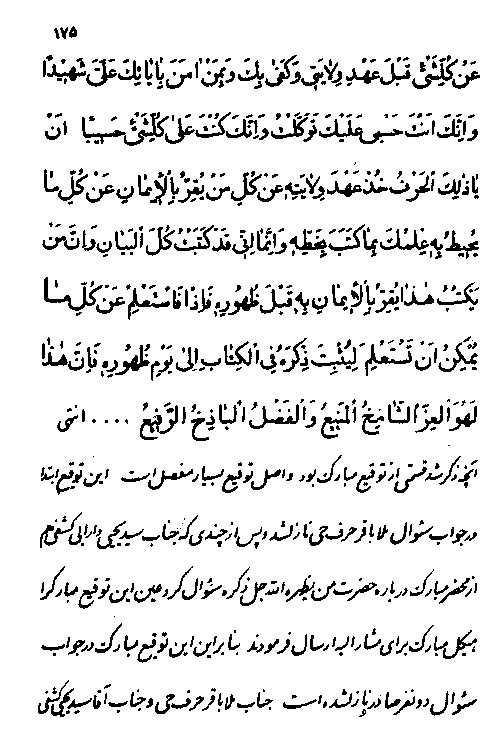 ۱۷۵
عَنْ كُلِّشَیْءٍ قَبْلَ عَهْدِ وِلٰایَتِی وَكَفیٰ بِكَ وَبِمَنْ اٰمَنَ بِاٰیٰاتِكَ عَلَیَّ شَهِیْدًا
وَاِنَّكَ اَنْتَ حَسْبِی عَلَیْكَ تَوَكَّلْتُ وَاِنَّكَ كُنْتَ عَلیٰ كُلِّشَیْءٍ حَسِیْبًا اَنْ
یٰاذٰلِكَ الْحَرْفُ خُذْ عَهْدَ وِلٰایَتِهِ عَنْ كُلِّ مَنْ یُقِرُّ بِالْاِیْمٰانِ عَنْ كُلِّ مٰا
یُحِیْطُ بِهِ عِلْمُكَ بِمٰا كَتَبَ بِخَطِّهِ وَاِنَّمٰا اِنِّی قَدْ كَتَبْتُ كُلَّ الْبَیٰانِ وَاَنَّ مَنْ
یَكْتُبُ هٰذٰا یُقِرُّ بِالْاِیْمٰانِ بِهِ قَبْلَ ظُهُوْرِهِ فَاِذًا فَاسْتَعْلِمْ عَنْ كُلِّ مٰا
یُمْكِنُ اَنْ تَسْتَعْلِمَ لِیُثْبِتَ ذِكْرَهُ فِی الْكِتٰابِ اِلیٰ یَوْمِ ظُهُوْرِهِ فَاِنَّ هٰذٰا
لَهُوَ الْعِزُّ الشّٰامِخُ الْمَنِیْعُ وَالْفَضْلُ الْبٰاذِخُ الرَّفِیْعُ .... انتهی
آنچه ذکر شد قسمتی از توقیع مبارک بود و اصل توقیع بسیار مفصل است این توقیع ابتدا
در جواب سئوال ملا باقر حرف حی نازل شد و پس از چندی که جناب سید یحیی دارابی کشفی هم
از محضر مبارک درباره حضرت من یظهره الله جل ذکره سئوال کرد عین این توقیع مبارک را
هیکل مبارک برای مشارالیه ارسال فرمودند بنابراین این توقیع مبارک در جواب
سئوال دو نفر صادر و نازل شده است جناب ملا باقر حرف حی و جناب آقا سید یحیی کشفی